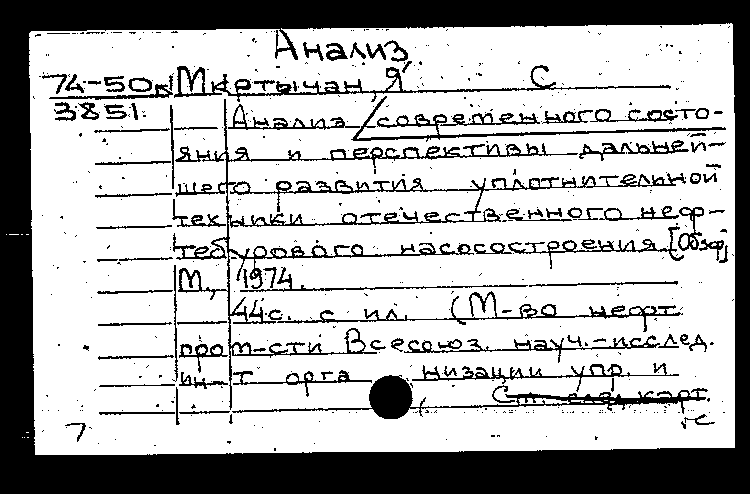 Анализ
74-50к Мкртычан, Я С
3851.
Анализ современного состо-
яния и перспективы дальней-
шего развития уплотнительной
техники отечественного неф-
тебурового насосостроения. [Обзор]
М., 1974.
44с. с ил. (М-во нефт.
пром-сти Всесоюз. науч.-исслед.
ин-т орга низации упр. и
См. след. карт.
7